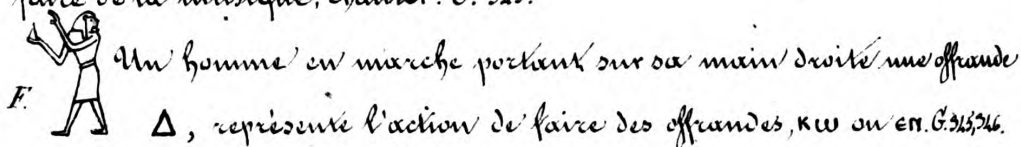 faire de la musique, chanter. G. 343.
Un homme en marche portant sur sa main droite une offrande
F.
Δ, représente l'action de faire des offrandes, ⲕⲱ ou ⲉⲛ. G. 345, 346.